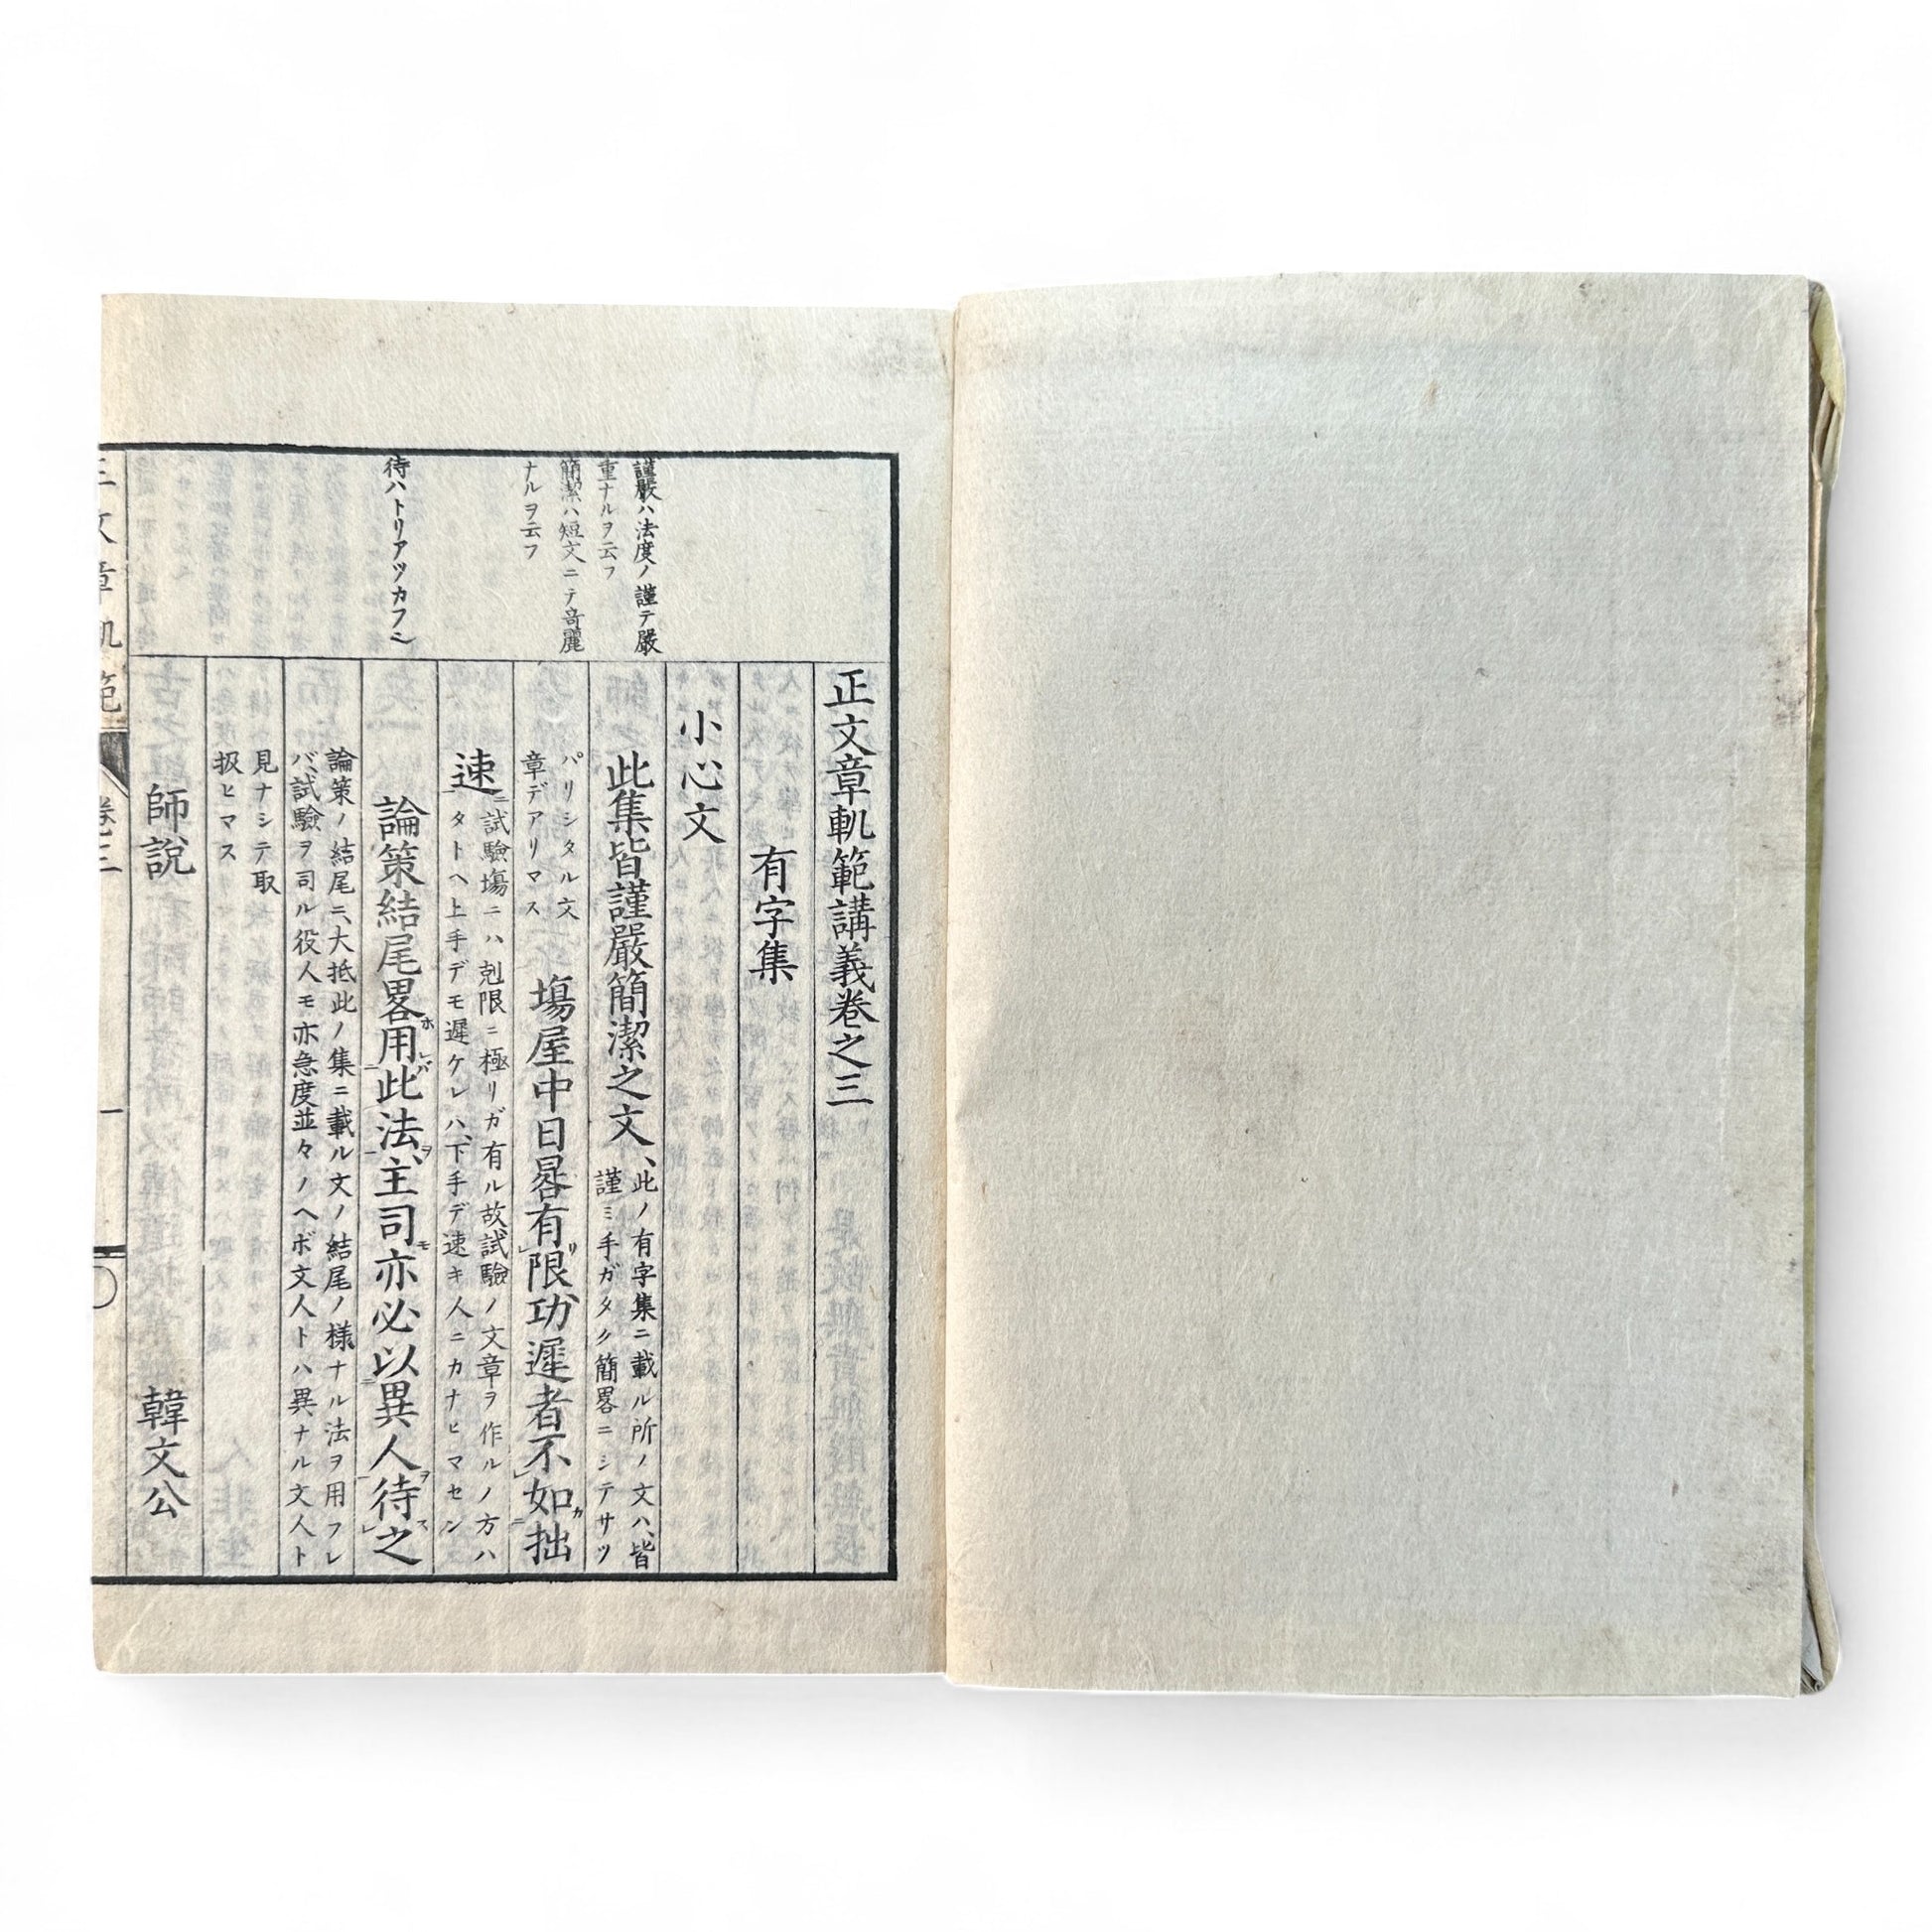 謹嚴ハ法度ノ謹テ嚴
重ナルヲ云フ
簡潔ハ短文ニテ奇麗
ナルヲ云フ
待ハトリアツカフ
正文章軌範講義卷之三
有字集
小心文
此集皆謹嚴簡潔之文、
此ノ有字集ニ載ル所ノ文ハ、皆
謹ミ手ガタク簡畧ニシテサツ
パリシタル文
章デアリマス
塲屋中日晷有リ限功遲者不如カ拙
速ニ
試驗塲ニハ剋限ニ極リガ有ル故試驗ノ文章ヲ作ルノ方ハ
タトヘ上手デモ遲ケレハ、下手デ速キ人ニカナヒマセン
論策結尾畧ホ用レバ此法ヲ、主司モ亦必以異人ヲ待ス之
論策ノ結尾ニ、大抵此ノ集ニ載ル文ノ結尾ノ様ナル法ヲ用フレ
バ、試驗ヲ司ル役人モ亦急度並々ノヘボ文人トハ異ナル文人ト
見ナシテ取
扱ヒマス
師説
韓文公
文章軌範
卷三
一